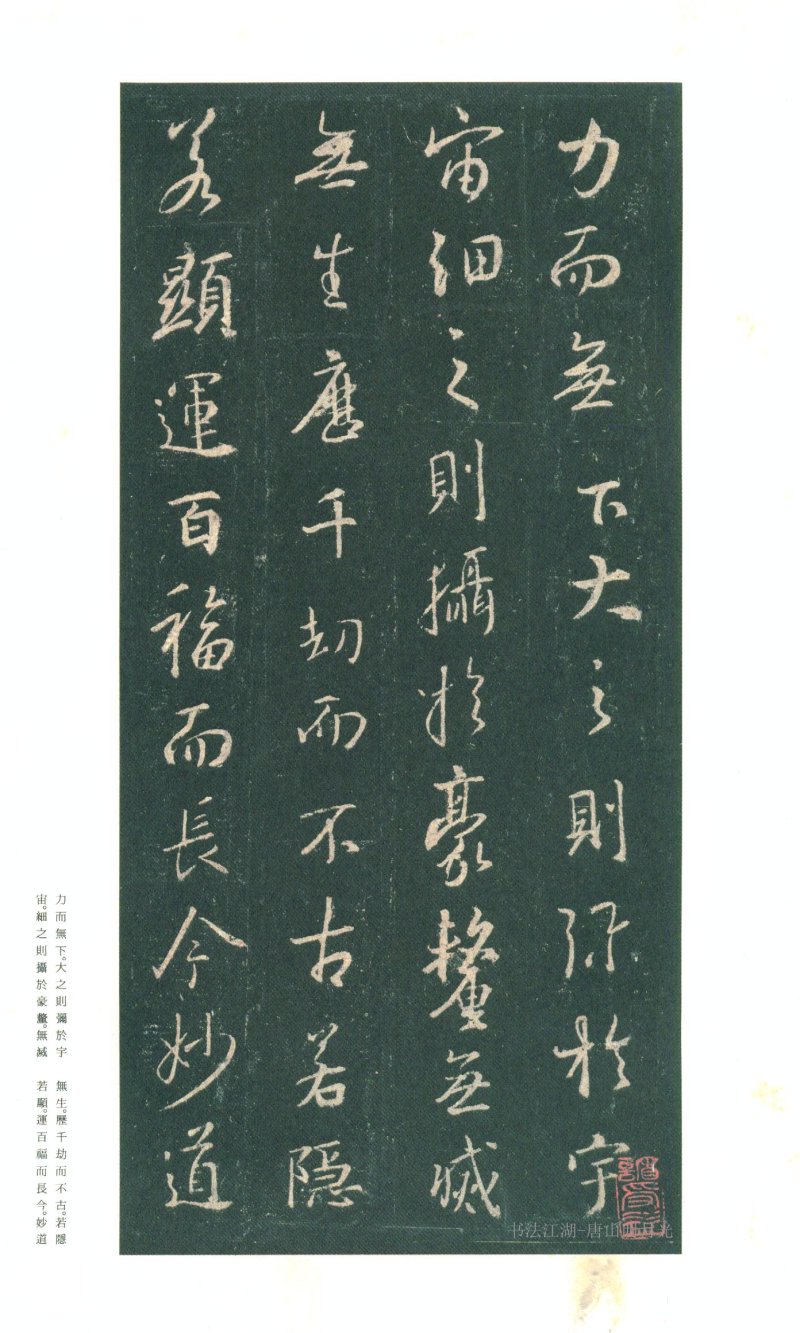 力而無下大之則弥於宇
宙細之則攝於豪釐無滅
無生歷千劫而不古若隱
若顯運百福而長今妙道
力而無下。大之則彌於宇
宙。細之則攝於豪釐。無滅
無生。歷千劫而不古。若隱
若顯。運百福而長今。妙道
书法江湖-唐山